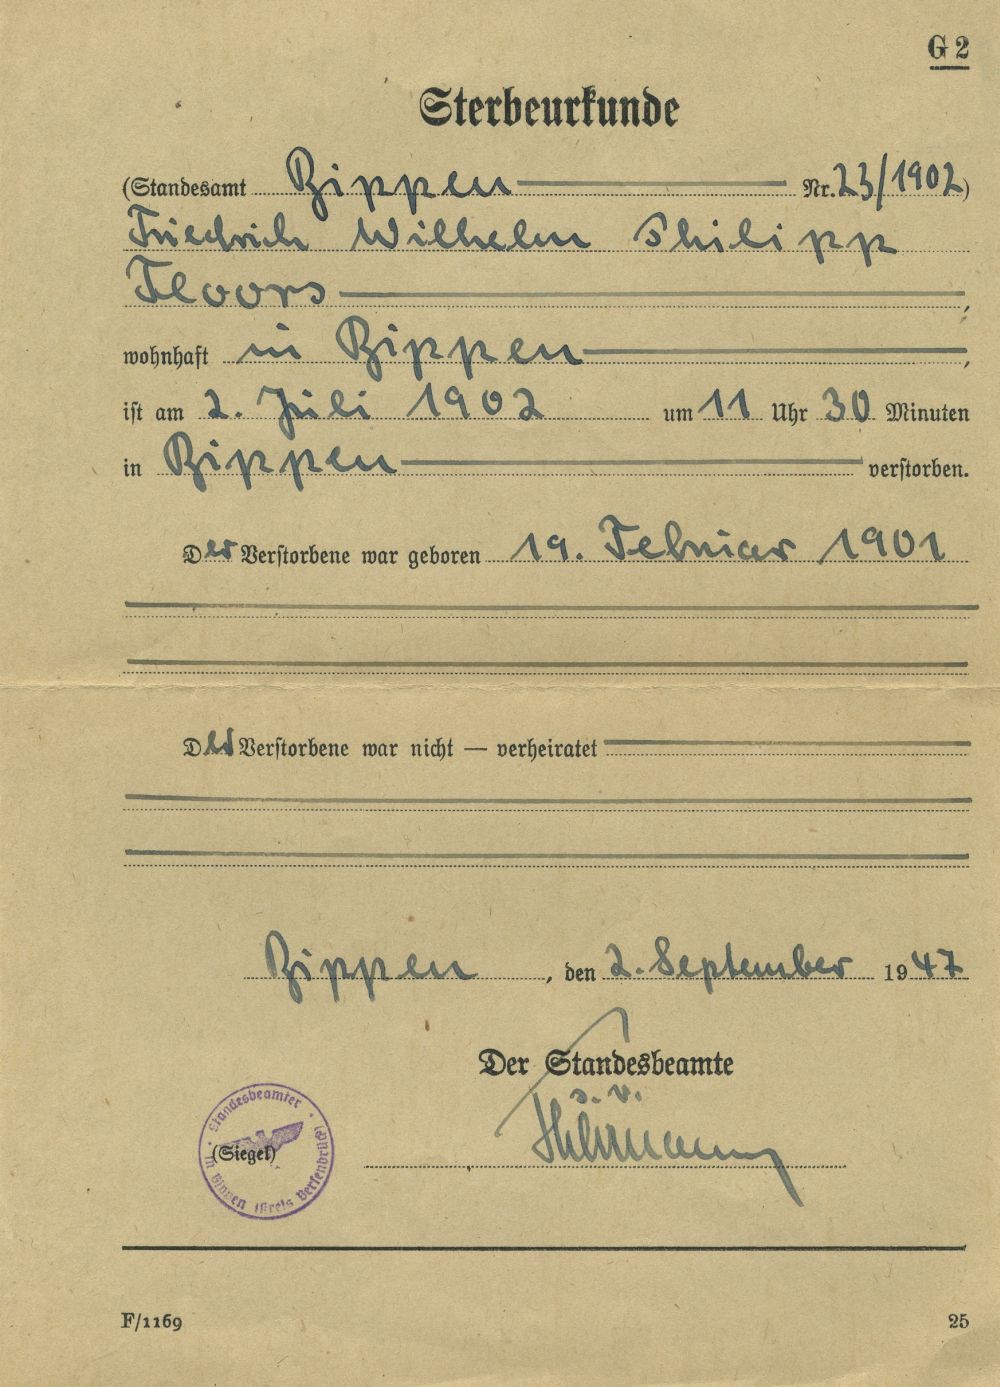 G 2
Sterbeurkunde
(Standesamt Bippen Nr. 23/1902)
Friedrich Wilhelm Philipp
Floors,
wohnhaft in Bippen,
ist am 2. Juli 1902 um 11 Uhr 30 Minuten
in Bippen verstorben.
Der Verstorbene war geboren 19. Februar 1901
Der Verstorbene war nicht — verheiratet
Bippen, den 2. September 1947
Der Standesbeamte
s. v.
Standesbeamter
(Siegel)
in Bippen (Kreis Bersenbrück)
F/1169
25